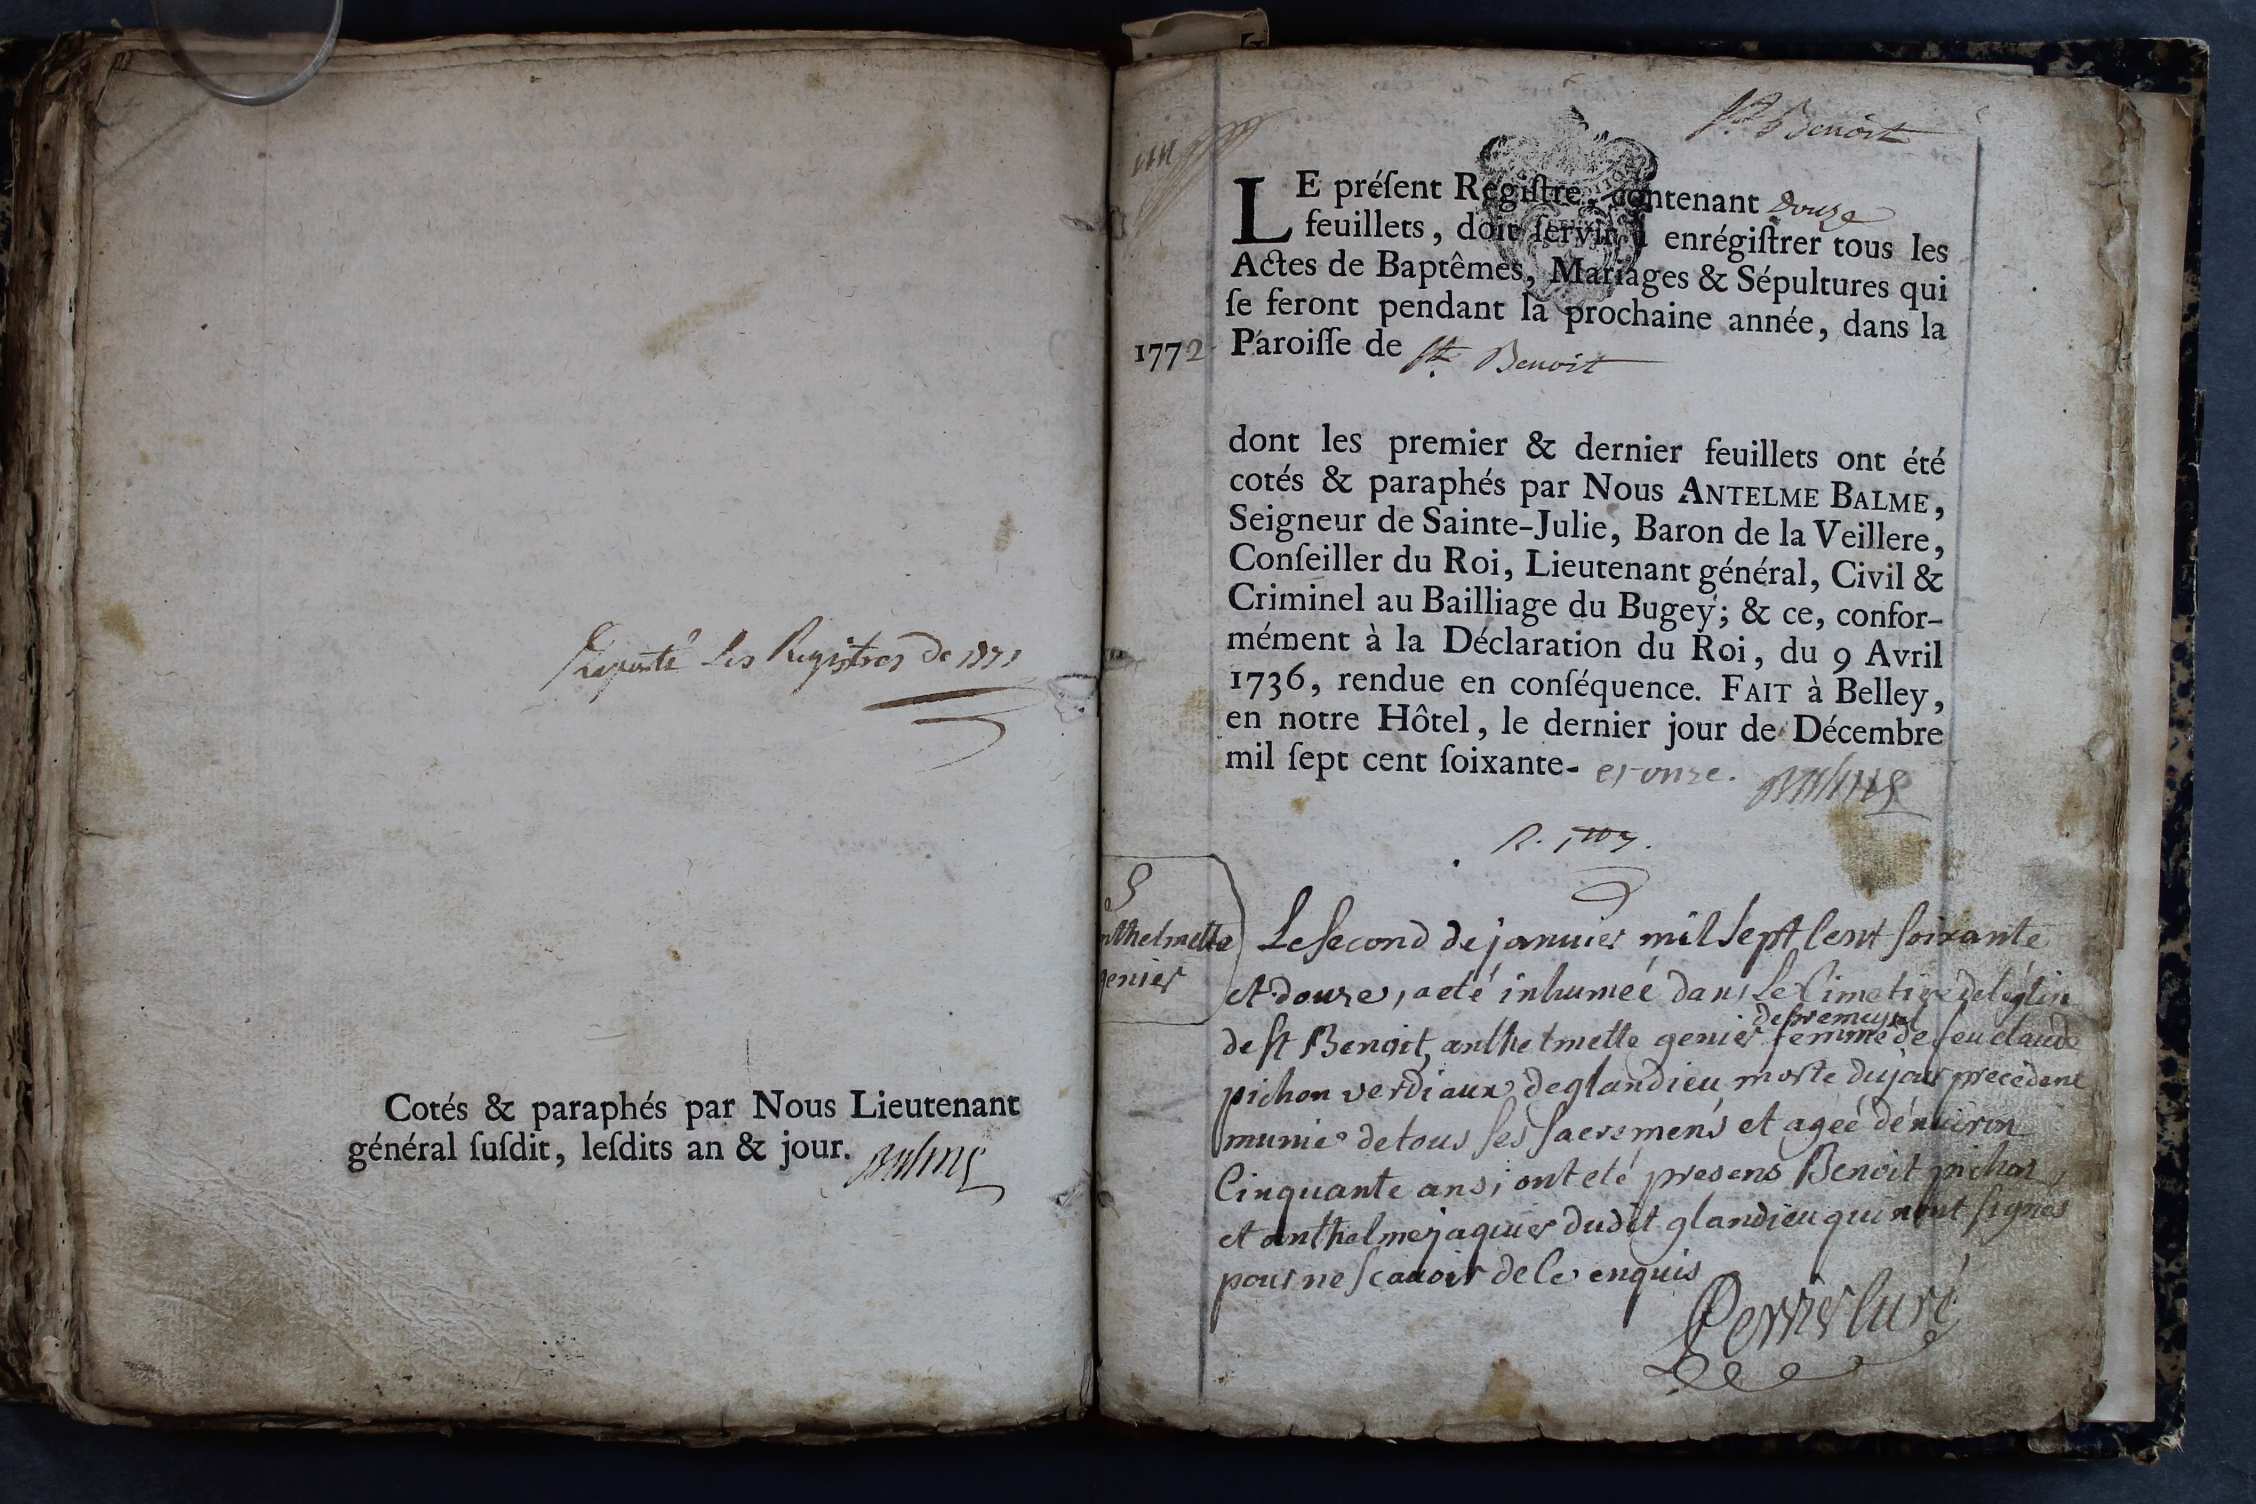 les Registres de 1771
Cotés & paraphés par Nous Lieutenant
général ſuſdit, leſdits an & jour. Balme
St Benoit
LE préſent Regiſtre, contenant douze
feuillets, doit ſervir à enrégiſtrer tous les
Actes de Baptêmes, Mariages & Sépultures qui
ſe feront pendant la prochaine année, dans la
1772 Paroiſſe de St Benoit
dont les premier & dernier feuillets ont été
cotés & paraphés par Nous ANTELME BALME,
Seigneur de Sainte-Julie, Baron de la Veillere,
Conſeiller du Roi, Lieutenant général, Civil &
Criminel au Bailliage du Bugey; & ce, confor-
mément à la Déclaration du Roi, du 9 Avril
1736, rendue en conſéquence. FAIT à Belley,
en notre Hôtel, le dernier jour de Décembre
mil ſept cent ſoixante- et onze. Balme
S
nthelmette
genier
Le second de janvier mil sept cent soixante
et douze, a eté inhumeé dans le Cimetire de leglise
de st Benoit, anthelmette genier femme de feu claude
pichon verdiaux de glandieu morte du jour precedent
munie de tous ses sacremens et ageé dénuiron
Cinquante ans, ont eté presens Benoit pichon,
et anthelme jaquier dudit glandieu qui nont signés
pour ne scauoir de ce enquis
Perrier Curé